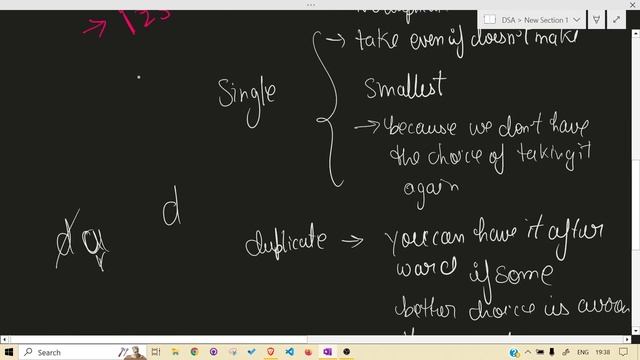 DSA > New Section 1
→ 123
→ take even if doesn't make
Single
smallest
→ because we don't have
the choice of taking it
again
d
d a
duplicate → you can have it after
ward if some
better choice is
Search
ENG
19:38